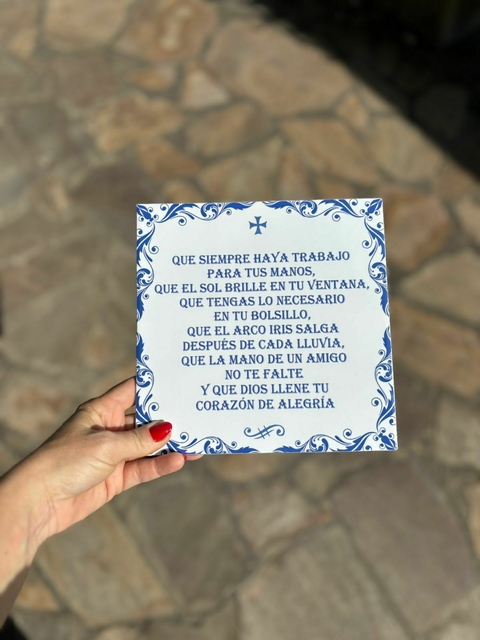 QUE SIEMPRE HAYA TRABAJO
PARA TUS MANOS,
QUE EL SOL BRILLE EN TU VENTANA,
QUE TENGAS LO NECESARIO
EN TU BOLSILLO,
QUE EL ARCO IRIS SALGA
DESPUÉS DE CADA LLUVIA,
QUE LA MANO DE UN AMIGO
NO TE FALTE
Y QUE DIOS LLENE TU
CORAZÓN DE ALEGRÍA